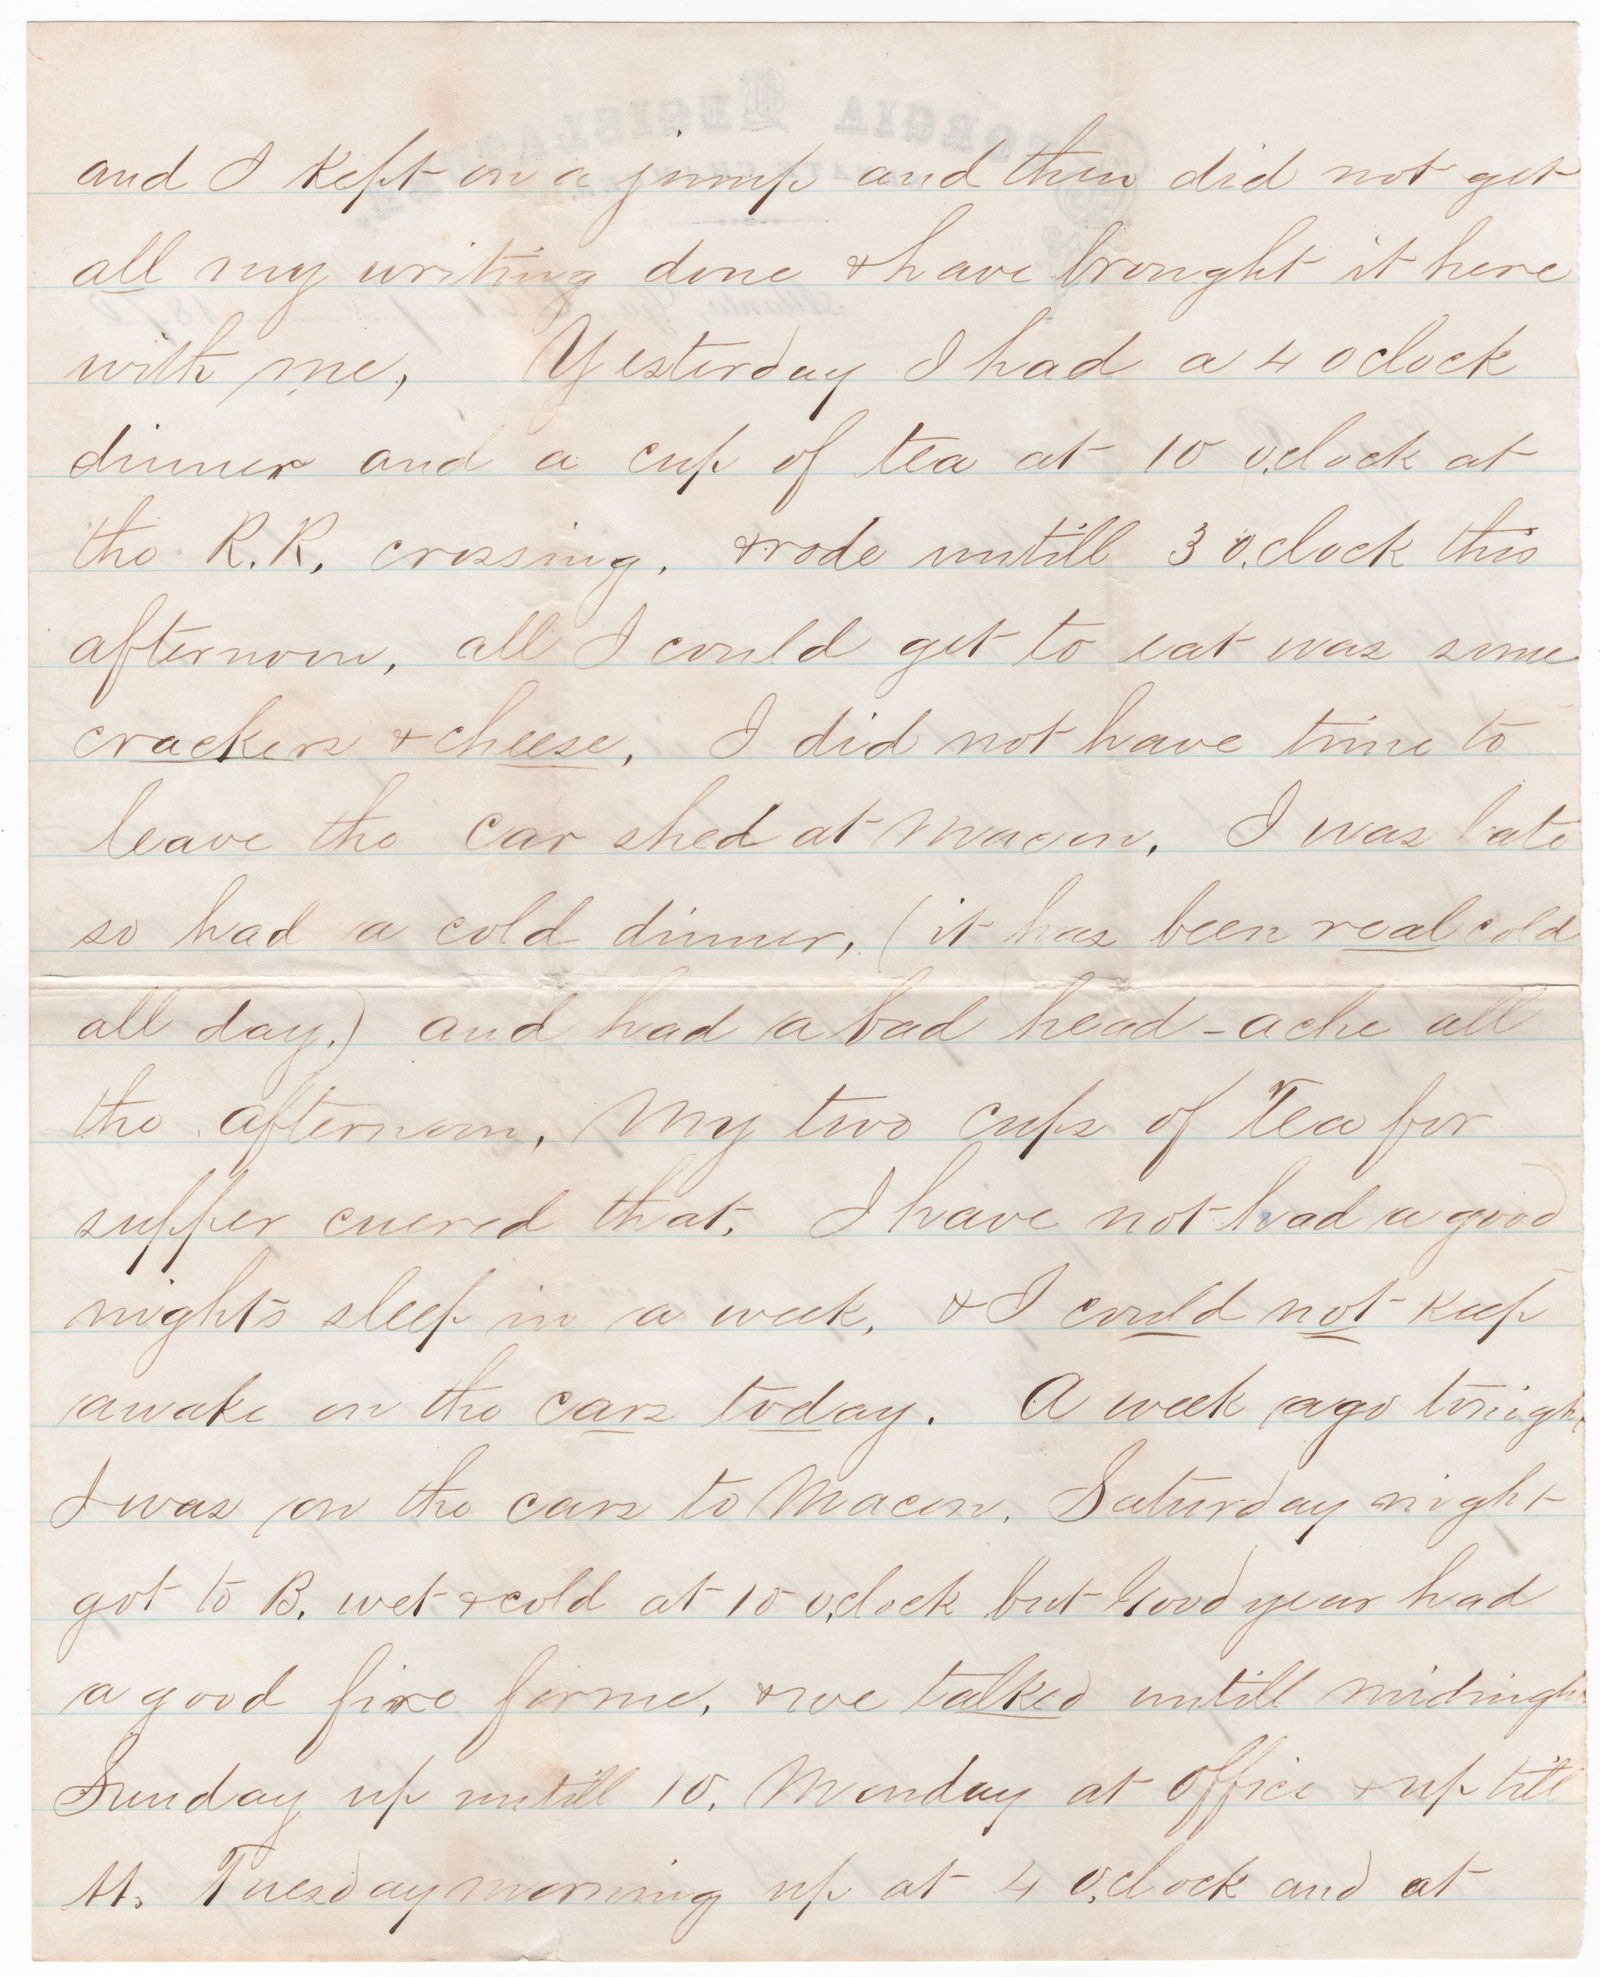 and I kept on a jump and then did not get
all my writing done & have brought it here
with me, Yesterday I had a 4 oclock
dinner and a cup of tea at 10 o,clock at
the R.R. crossing. & rode untill 3 o,clock this
afternoon, all I could get to eat was some
crackers & cheese, I did not have time to
leave the car shed at Macon. I was late
so had a cold dinner, (it has been real cold
all day.) and had a bad head-ache all
the afternoon, My two cups of Tea for
supper cuered that. I have not had a good
nights sleep in a week, & I could not keep
awake on the cars today. A week ago tonight
I was on the cars to Macon. Saturday night
got to B. wet & cold at 10 o,clock but Goodyear had
a good fire for me, & we talked untill midnigh
Sunday up untill 10, Monday at office & up till
11. Tuesday morning up at 4 o,clock and at
GEORGIA LEGISLAT
Atlanta, Ga 187